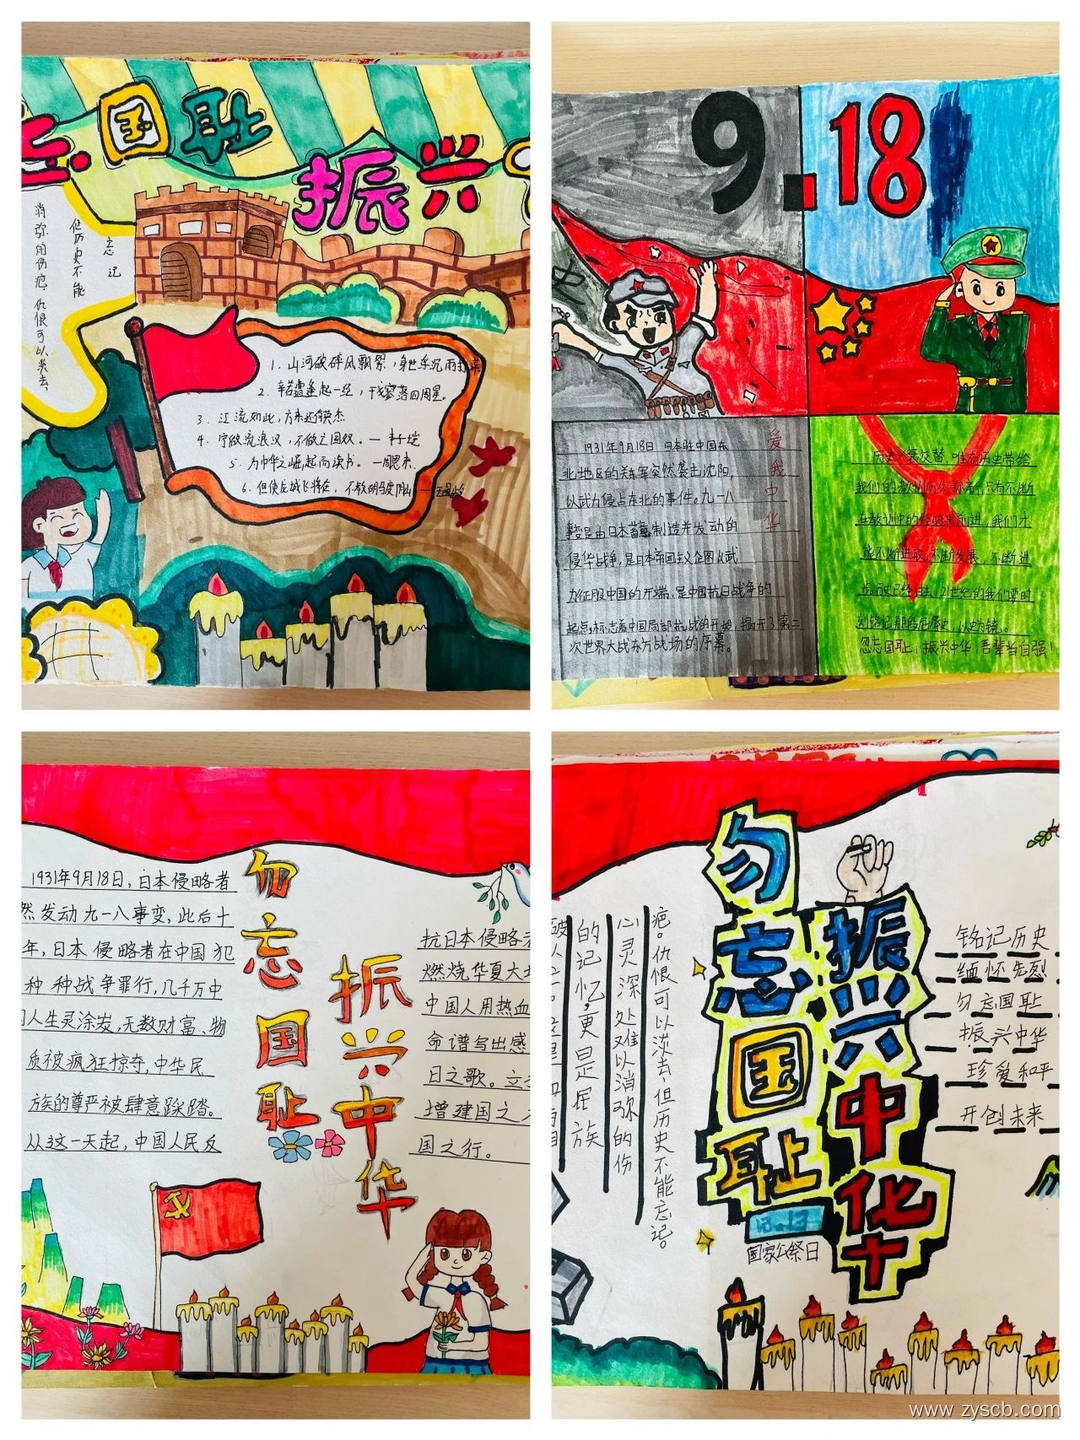 国耻
振兴
忘记
但历史不能
消弥的伤疤,仇恨可以淡去,
1. 山河破碎风飘絮,身世浮沉雨打萍
2. 辛苦遭逢起一经,干戈寥落四周星。
3. 江流如此,方来还有英杰
4. 宁做流浪汉,不做亡国奴。— 丰子恺
5. 为中华之崛起而读书。—周恩来
6. 但使龙城飞将在,不教胡马度阴山
9.18
史
1931年9月18日 日本驻中国东
北地区的关东军突然袭击沈阳,
以武力侵占东北的事件。九一八
事变是由日本蓄意制造并发动的
侵华战争,是日本帝国主义企图以武
力征服中国的开端,是中国抗日战争的
起点,标志着中国局部抗战的开始,揭开了第二
次世界大战东方战场的序幕。
爱我中华
忽忘国耻,振兴中华,吾辈当自强!
勿忘国耻
振兴中华
1931年9月18日,日本侵略者
然发动九一八事变,此后十
年,日本侵略者在中国犯
种种战争罪行,几千万中
人生灵涂炭,无数财富、物
质被疯狂掠夺,中华民
族的尊严被肆意践踏。
从这一天起,中国人民反
抗日本侵略者
燃烧华夏大地
中国人用热血
命谱写出感
日之歌。立
增建国之
国之行。
勿忘国耻
振兴中华
国家公祭日
疤。仇恨可以淡去,但历史不能忘记。
心灵深处难以消弥的伤
的记忆,更是民族
铭记历史
缅怀先烈
勿忘国耻
振兴中华
珍爱和平
开创未来
www.zyscb.com